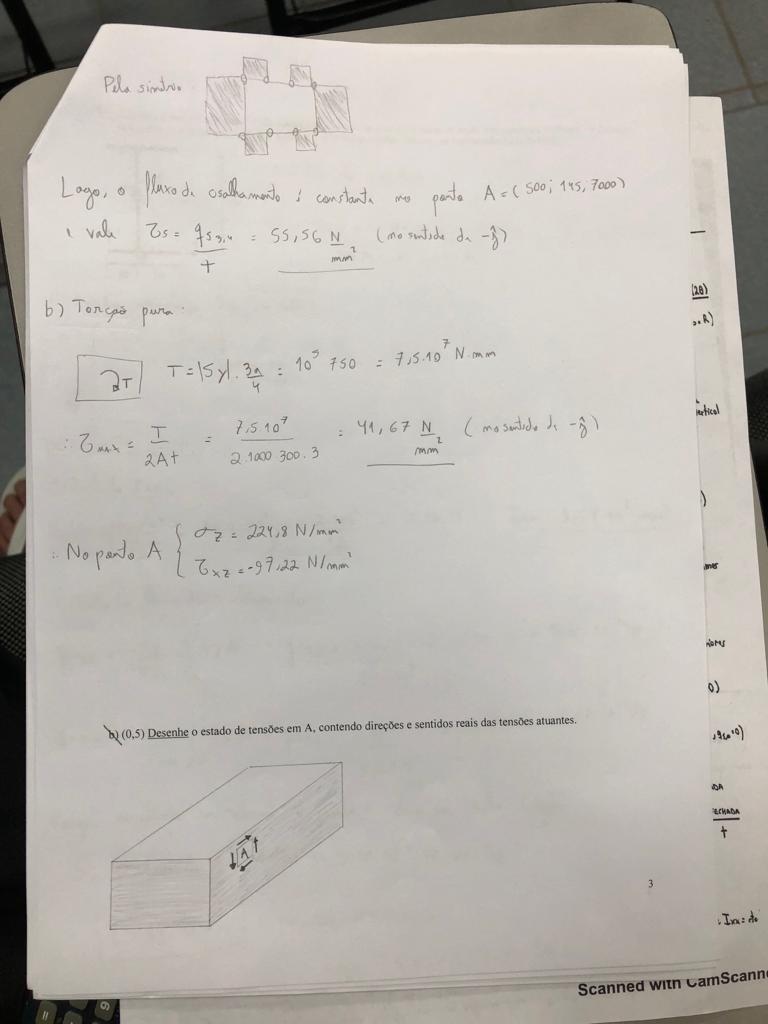 Pela simetria
Logo, o fluxo de cisalhamento é constante no ponto A = (500; 145; 7000)
e vale τs = qs 3,4 / t = 55,56 N/mm² (no sentido de -ĵ)
b) Torção pura:
T T = |Sy| . 3a/4 = 10⁵ 750 = 7,5.10⁷ N.mm
∴ τMAX = T/2At = 7,5.10⁷ / 2.1000.300.3 = 41,67 N/mm² (no sentido de -ĵ)
∴ No ponto A { σz = 224,8 N/mm²
τxz = -97,22 N/mm²
b) (0,5) Desenhe o estado de tensões em A, contendo direções e sentidos reais das tensões atuantes.
A
3
(2B)
ertical
)
mes
0)
DA
ECHADA
t
: Ixx = do
Scanned with CamScann